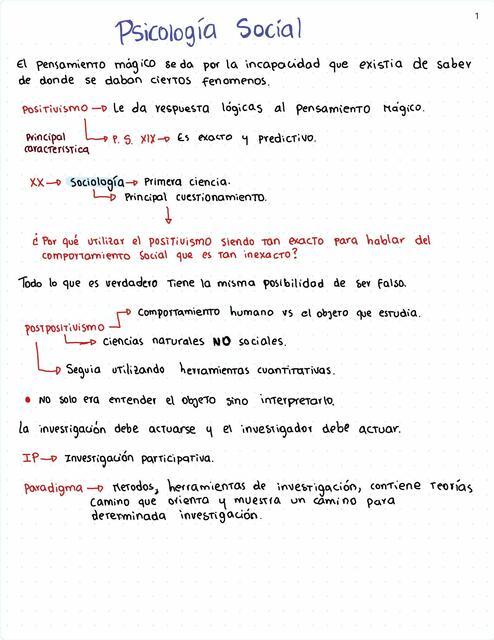 1
Psicología Social
El pensamiento mágico se da por la incapacidad que existia de saber
de donde se daban ciertos fenomenos.
Positivismo → Le da respuesta lógicas al pensamiento Mágico.
Principal característica → P. S. XIX → Es exacto y predictivo.
XX → Sociología → Primera ciencia.
→ Principal cuestionamiento.
¿Por qué utilizar el positivismo siendo tan exacto para hablar del
comportamiento social que es tan inexacto?
Todo lo que es verdadero tiene la misma posibilidad de ser falso.
→ Comportamiento humano vs el objeto que estudia.
Postpositivismo
→ Ciencias naturales NO sociales.
→ Seguia utilizando herramientas cuantitativas.
• No solo era entender el objeto sino interpretarlo.
La investigación debe actuarse y el investigador debe actuar.
IP → Investigación participativa.
Paradigma → Metodos, herramientas de investigación, contiene teorías
camino que orienta y muestra un camino para
determinada investigación.